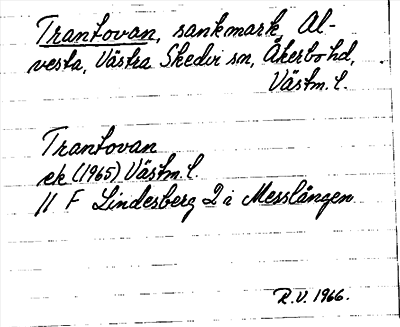 Trantovan, sankmark, Al-
vesta, Västra Skedvi sn, Åkerbo hd,
Västm. l.
Trantovan
ek (1965) Västm. l.
11 F Lindesberg 2 i Messlången
R.V. 1966.